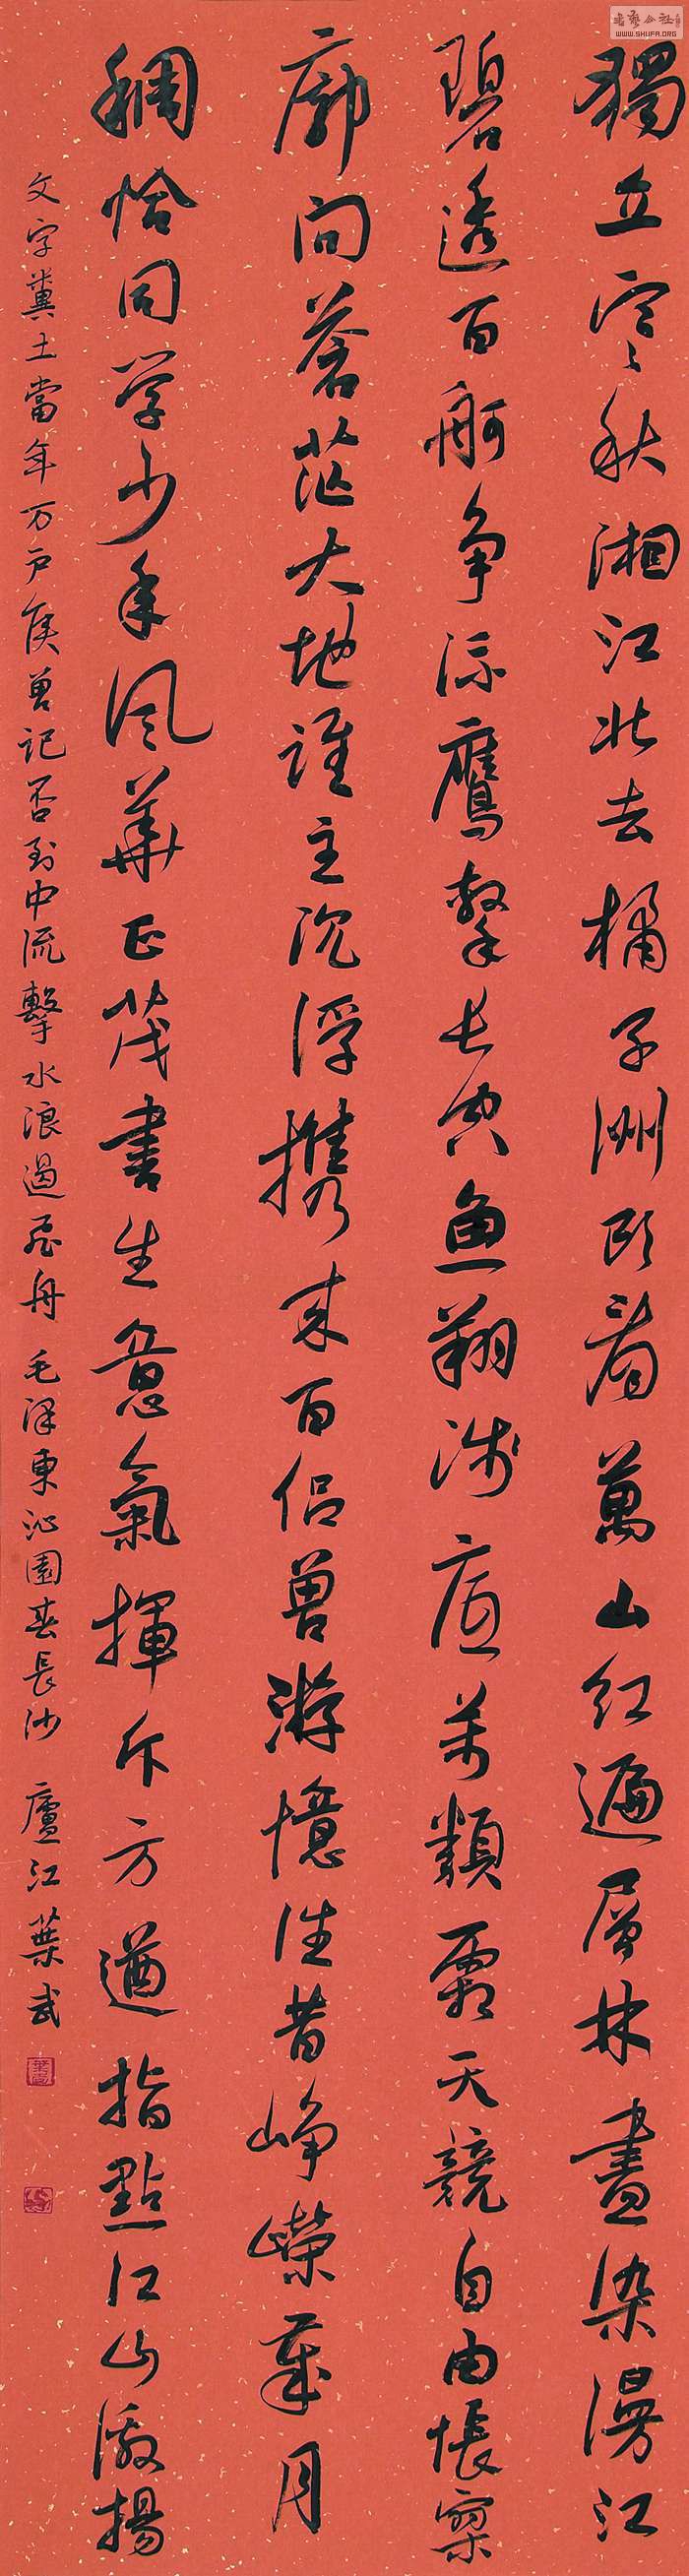 獨立寒秋湘江北去橘子洲頭看萬山红遍層林盡染漫江
碧透百舸争流鷹擊長空魚翔淺底万類霜天競自由悵寥
廓问蒼茫大地誰主沉浮携来百侣曾游憶往昔峥嶸歲月
稠恰同学少年风華正茂書生意氣揮斥方遒指點江山激揚
文字糞土當年万户侯曾记否到中流擊水浪遏飛舟 毛泽東沁園春長沙 廬江葉武
WWW.SHUFA.ORG